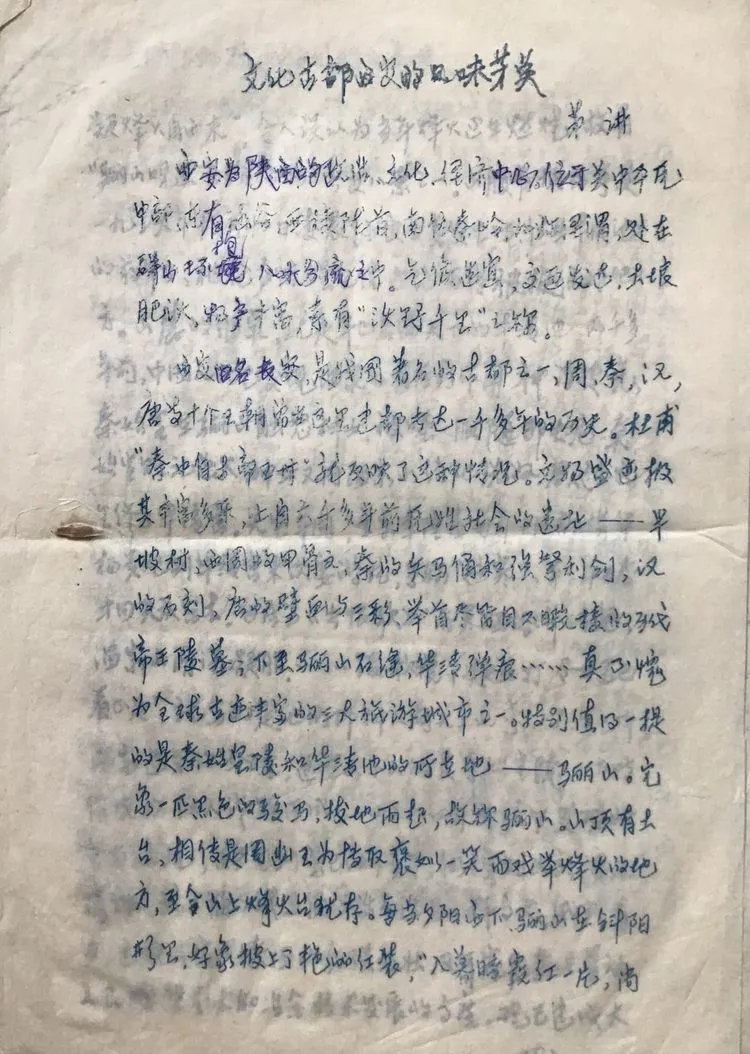 文化古都西安的风味茅英
黄讲
西安为陕西的政治、文化、经济中心。位于关中平原
中部，东有函谷，西接陇首，南依秦岭，北临泾渭，处在
群山环抱，八水分流之中。气候适宜，交通发达，土壤
肥沃，物产丰富，素有“沃野千里”之称。
西安旧名长安，是我国著名的古都之一，周，秦，汉，
唐等十个王朝曾在这里建都长达一千多年的历史。杜甫
“秦中自古帝王州”就反映了这种情况。文物胜迹极
其丰富多采，上自六千多年前氏姓社会的遗址——半
坡村，西周的甲骨文，秦的兵马俑和强弩利剑，汉
的石刻，唐的壁画与三彩、举首尽皆目不暇接的历代
帝王陵墓；下至骊山石缝，华清弹痕……真不愧
为全球古迹丰富的三大旅游城市之一。特别值得一提
的是秦始皇陵和华清池的所在地——骊山。它
象一匹黑色的骏马，拔地而起，故称骊山。山顶有土
台，相传是周幽王为博取褒姒一笑而戏举烽火的地
方，至今山上烽火台犹存。每当夕阳西下骊山在斜阳
里，好象披上了艳的红装，“入暮晴霞红一片，尚